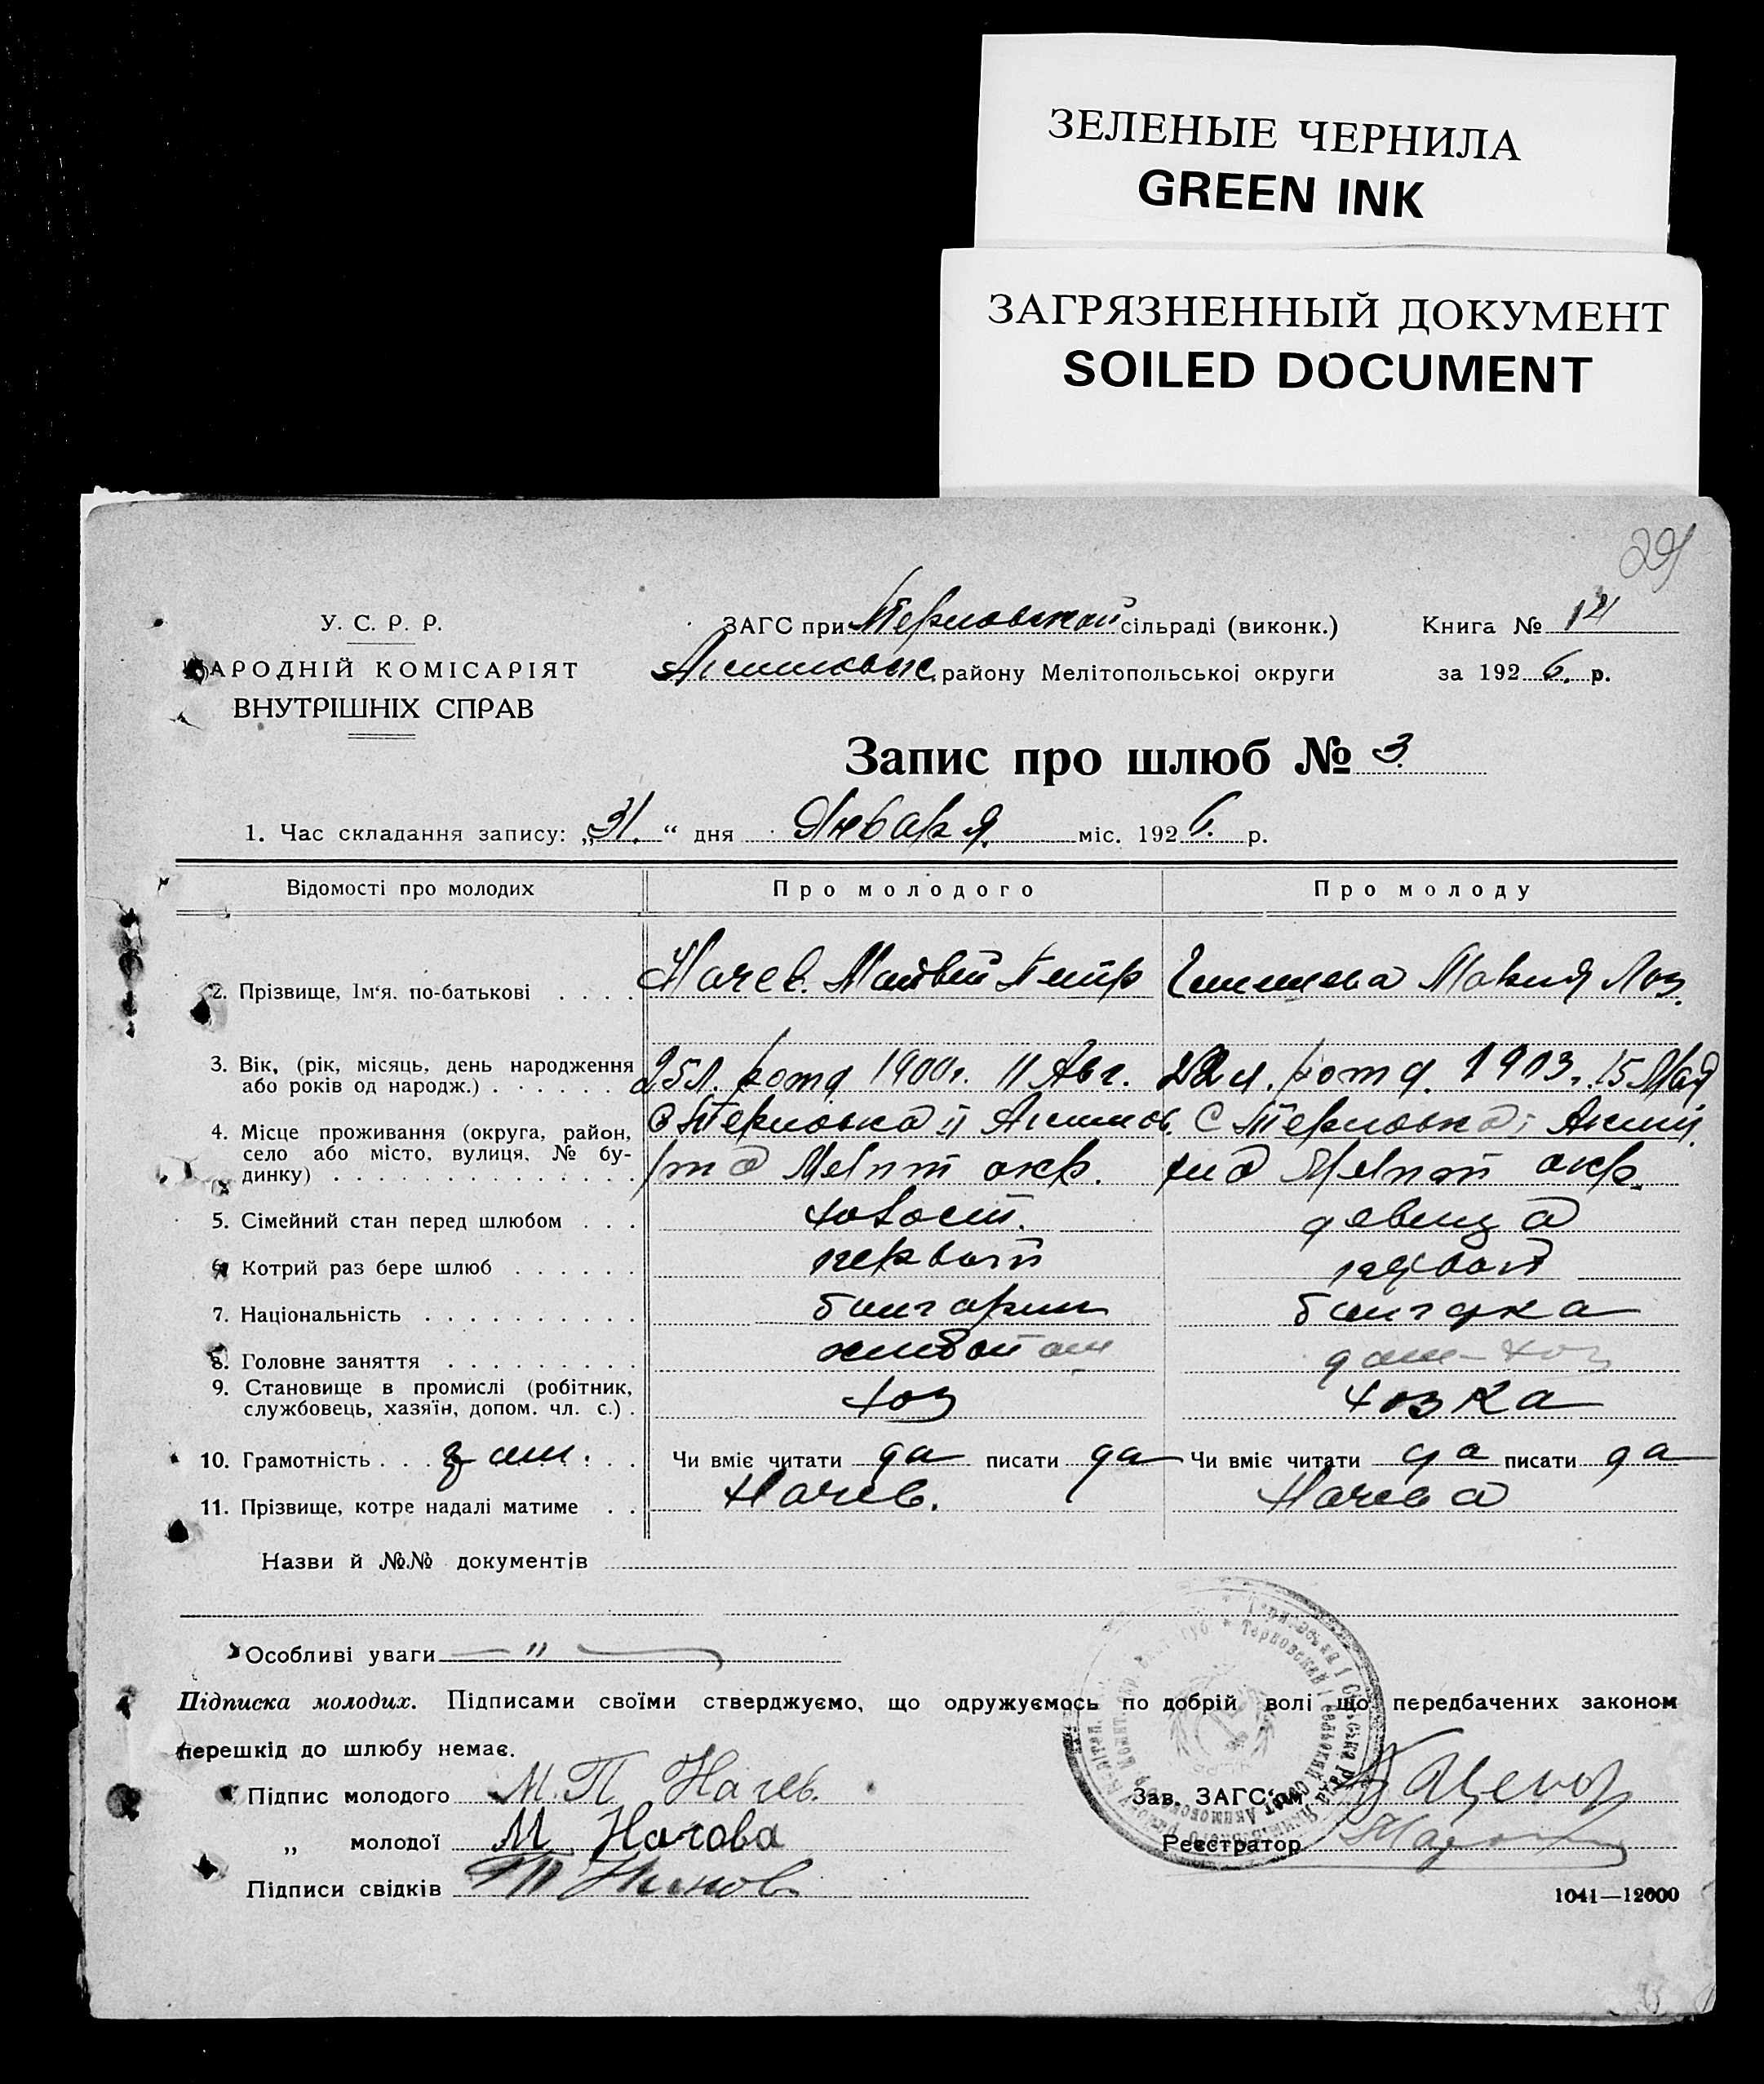 ЗЕЛЕНЫЕ ЧЕРНИЛА
GREEN INK
ЗАГРЯЗНЕННЫЙ ДОКУМЕНТ
SOILED DOCUMENT
29
У. С. Р. Р.
НАРОДНІЙ КОМІСАРІЯТ
ВНУТРІШНІХ СПРАВ
ЗАГС при Терновской сільраді (виконк.)
Акимовск. району Мелітопольської округи
Книга № 14
за 1926. р.
Запис про шлюб № 3.
1. Час складання запису: „31.“ дня Января. міс. 1926. р.
Відомості про молодих Про молодого Про молоду
2. Прізвище, Ім‘я. по-батькові . . . . Начев. Матвей Петр Мария Лаз.
3. Вік, (рік, місяць, день народження або років од народж.) . . . . . . 25 л. рота 1900 г. 11 Авг. 22 л. рота. 1903. 15 Мая
4. Місце проживання (округа, район, село або місто, вулиця, № будинку) . . . . . . . . . . . . . . С Терновка Акимов. р-на Мелит окр. С Терновка Аким. р-на Мелит окр.
5. Сімейний стан перед шлюбом . . . холост. девица
6. Котрий раз бере шлюб . . . . . . первый первый
7. Національність . . . . . . . . . . болгарин болгарка
8. Головне заняття . . . . . . . . . дом-хоз
9. Становище в промислі (робітник, службовець, хазяїн, допом. чл. с.) . хоз хозка
10. Грамотність . . . Чи вміє читати да писати да Чи вміє читати да писати да
11. Прізвище, котре надалі матиме . . Начев. Начева
Назви й №№ документів
Особливі уваги — " —
Підписка молодих. Підписами своїми стверджуємо, що одружуємось по добрій волі що передбачених законом
перешкід до шлюбу немає.
Підпис молодого М. П Начев.
„ молодої М Начова
Підписи свідків
Зав. ЗАГС‘ом
Реєстратор
1041—12000